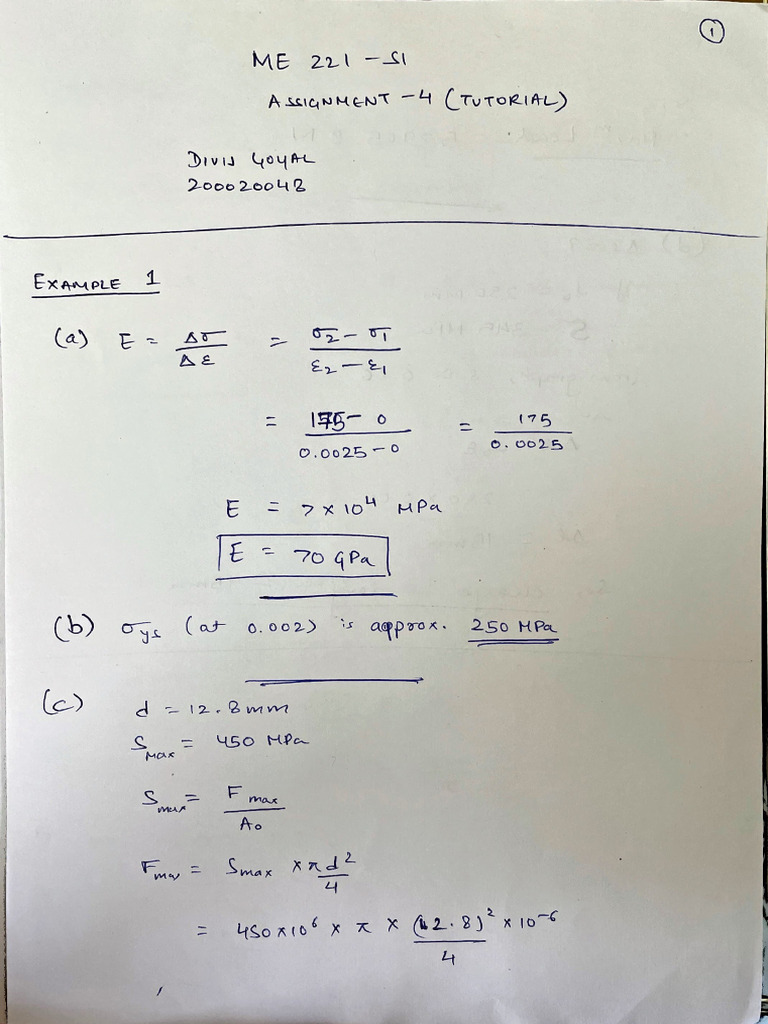 1
ME 221 - S1
ASSIGNMENT - 4 (TUTORIAL)
DIVIJ GOYAL
200020048
EXAMPLE 1
(a) E = Δσ/Δε = (σ2 - σ1)/(ε2 - ε1)
= (175 - 0)/(0.0025 - 0) = 175/0.0025
E = 7 × 10⁴ MPa
E = 70 GPa
(b) σys (at 0.002) is approx. 250 MPa
(c) d = 12.8 mm
SMax = 450 MPa
Smax = Fmax/A0
Fmax = Smax × πd²/4
= 450 × 10⁶ × π × (12.8)²/4 × 10⁻⁶